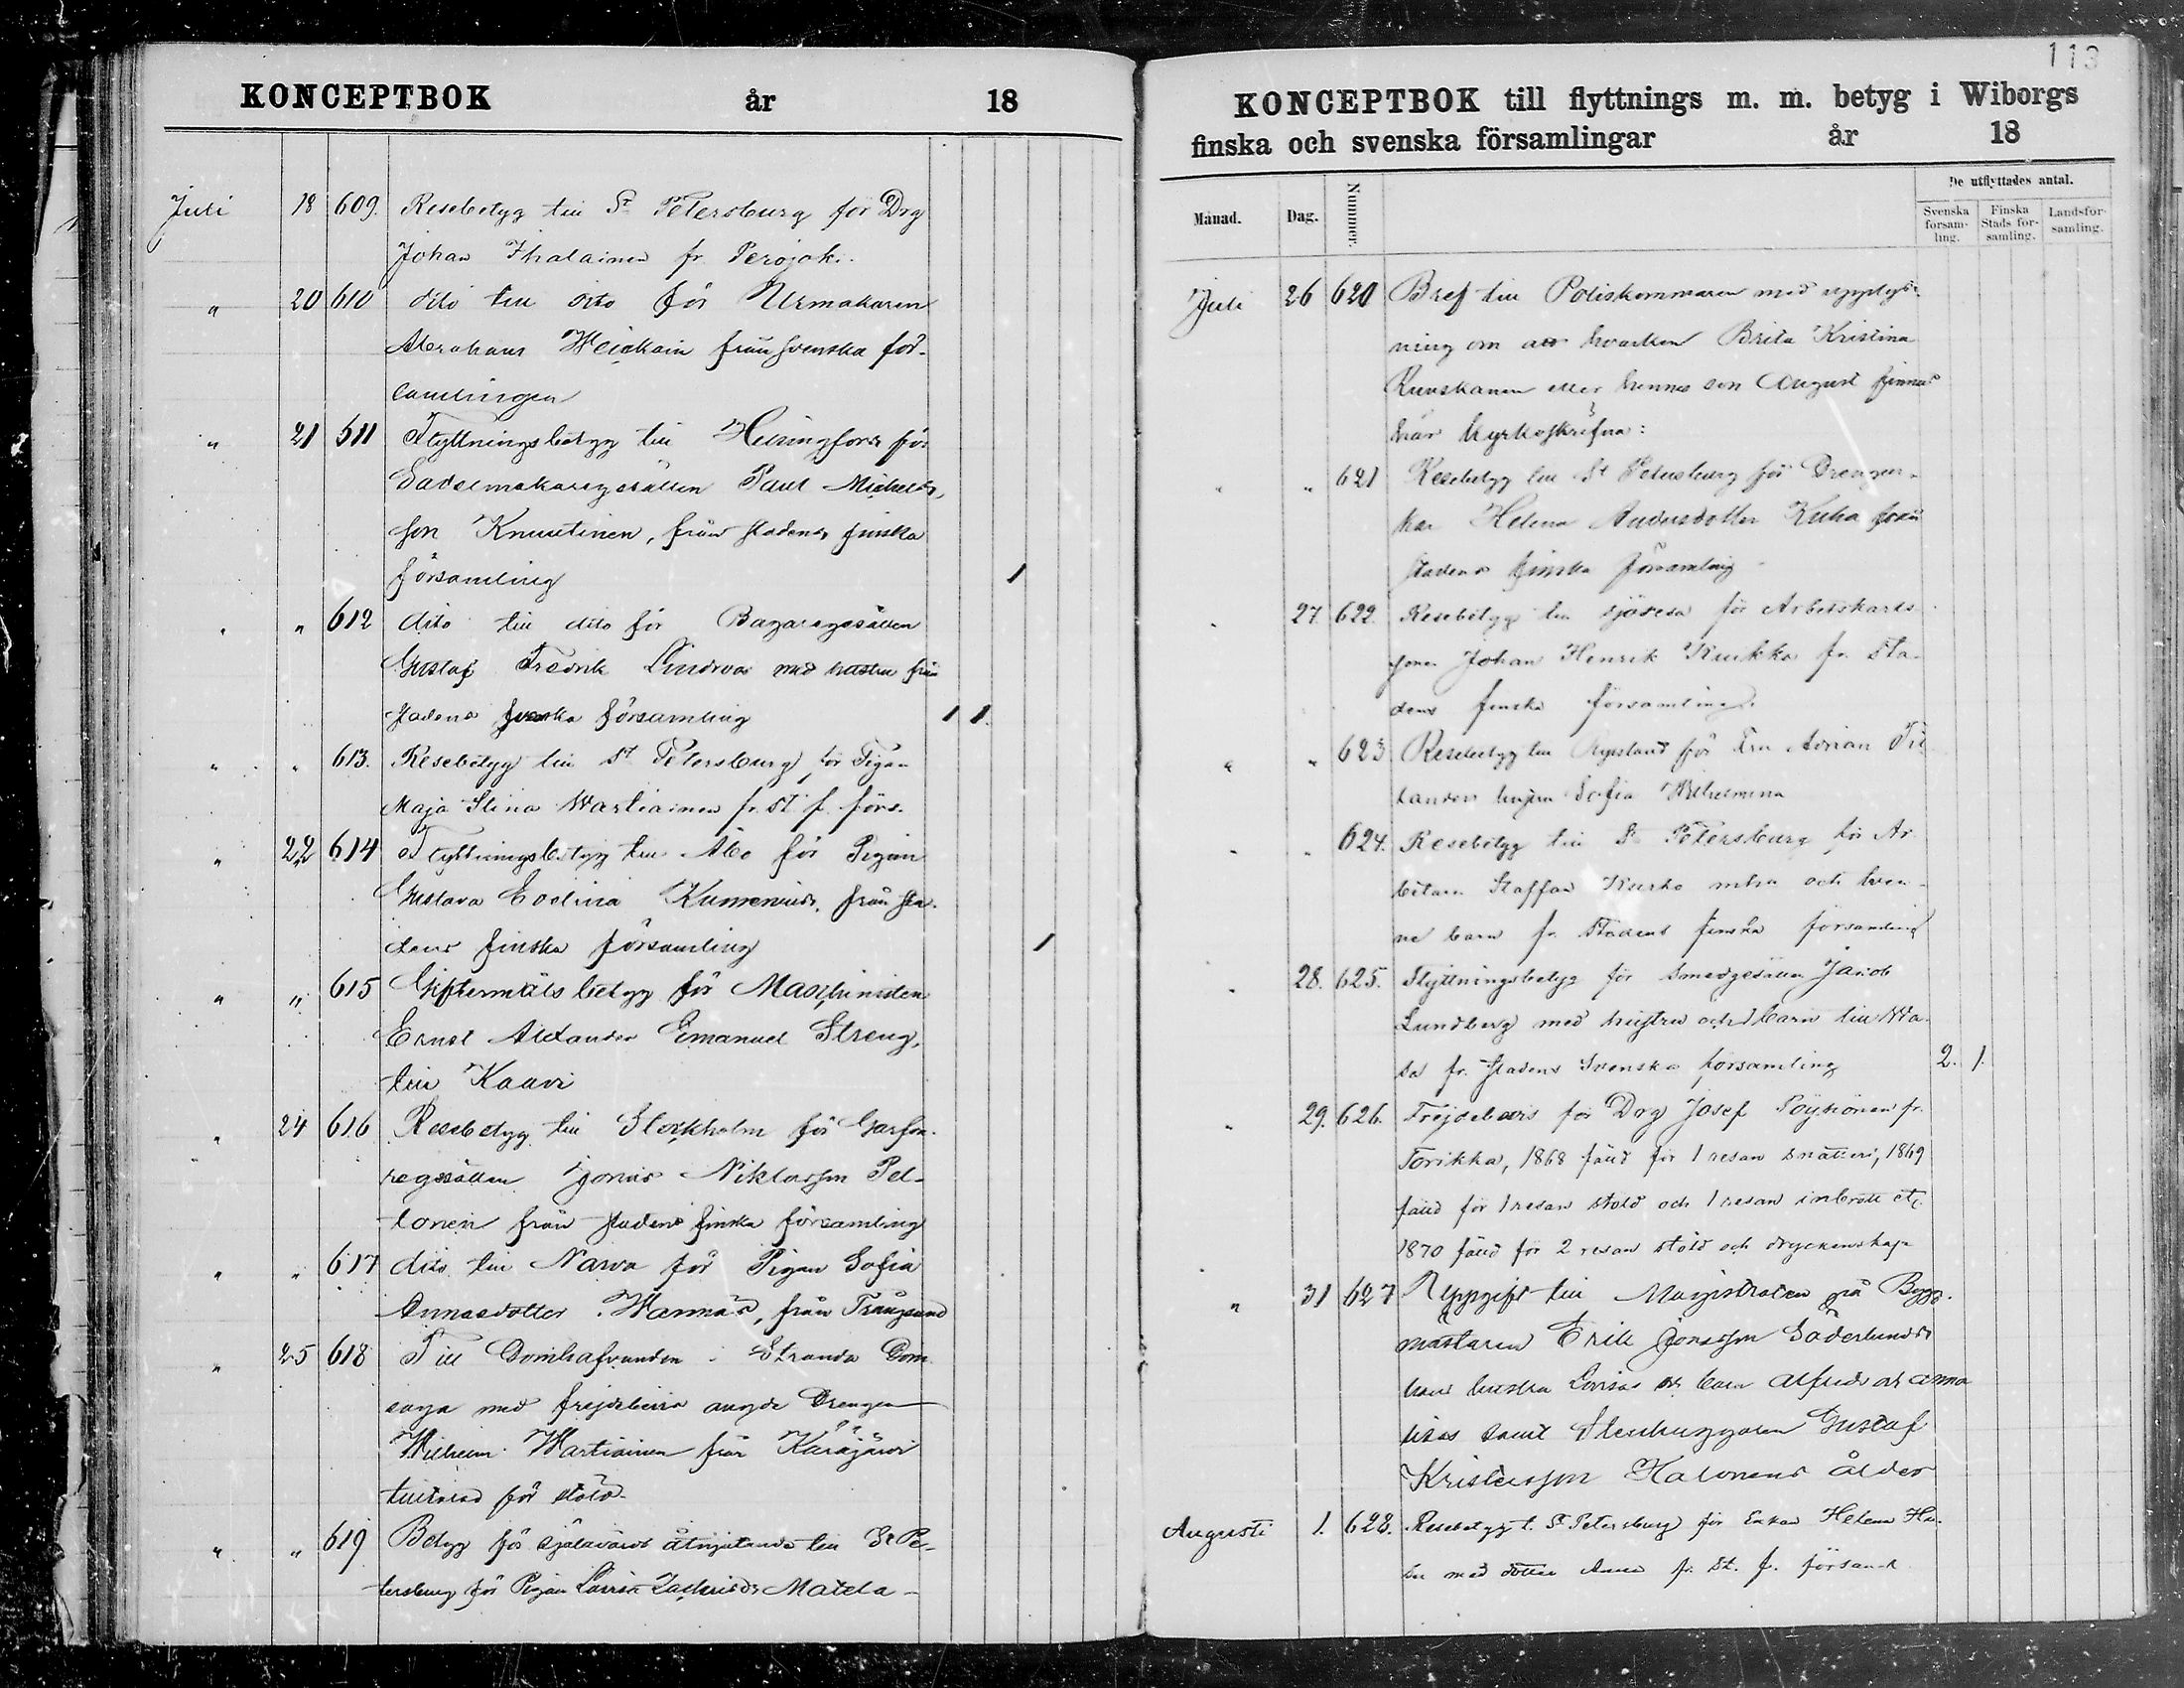 KONCEPTBOK år 18
Juli 18 609. Resebetyg till St Petersburg för Drg
Johan Ihalainen fr. Perojoki.
" 20 610 dito till dito för Urmakaren
Abraham från svenska för-
samlingen
" 21 511 Flyttningsbetyg till Helsingfors för
Sadelmakaregesällen Paul Michels-
son Knuutinen, från stadens finska
församling 1
" " 612 dito till dito för Bagaregesällen
Gustaf Fredrik Lindroos med hustru från
stadens svenska församling 1 1.
" " 613. Resebetyg till St Petersburg för Pigan
Maja Stina Wartiainen fr. st. f. förs.
" 22 614 Flyttningsbetyg till Åbo för Pigan
Gustava Evelina från sta-
dens finska församling 1
" " 615 Giftermåls betyg för Maschinisten
Ernst Alexander Emanuel Streng,
till Kaavi
" 24 616 Resebetyg till Stockholm för Garfva-
regesällen Jonas Niklasson Pel-
tonen från stadens finska församling
" " 617 dito till Narva för Pigan Sofia
Annasdotter Wanna's, från Trångsund
" 25 618 Till Domhafvanden i Stranda Dom
saga med frejdebevis angde Drengen
Wilhelm Wartiainen från Karajärvi
tilltalad för stöld.
" " 619 Betyg för själavårds åtnjutande till St Pe-
tersburg för Pigan Lovisa Zachrisdr Matela -
113
KONCEPTBOK till flyttnings m. m. betyg i Wiborgs
finska och svenska församlingar år 18
Månad. Dag. Nummer. De utflyttades antal.
Svenska församling. Finska Stads församling. Landsförsamling.
Juli 26 620 Bref till Poliskammaren med upplys-
ning om att hvarken Brita Kristina
eller hennes son August finnas
här kyrkoskrifna:
" " 621 Resebetyg till St Petersburg för Drengen-
kan Helena Andersdotter Kuha från
stadens finska församling -
" 27. 622. Resebetyg till sjöresa för Arbetskarls
sonen Johan Henrik Kuikka fr. sta-
dens finska församling.
" " 623 Resebetyg till Ryssland för Fru Adrian
landers hustru Sofia Wilhelmina
" " 624. Resebetyg till St Petersburg för Ar
betaren Staffan Kurko mhu och tven-
ne barn fr. stadens finska församling
" 28. 625. Flyttningsbetyg för Smedgesällen Jakob
Lundberg med hustru och 1 barn till Wa-
sa fr. stadens Svenska församling 2. 1.
" 29. 626. Frejdebevis för Drg Josef Pöyhönen fr.
Torikka, 1868 fälld för 1 resan snatteri, 1869
fälld för 1 resan stöld och 1 resan inbrott etc.
1870 fälld för 2 resan stöld och dryckenskap
" 31 627 Uppgift till Magistraten på Bygg-
mästaren Erik Jonasson Söderlunds
hans hustru Lovisas och barn Alfreds och Anna
lisas samt Stenhuggaren Gustaf
Kristersson Halonens ålder
Augusti 1. 628. Resebetyg t. St Petersburg för Enkan Helena
med dotter Anna fr. St. f. församl